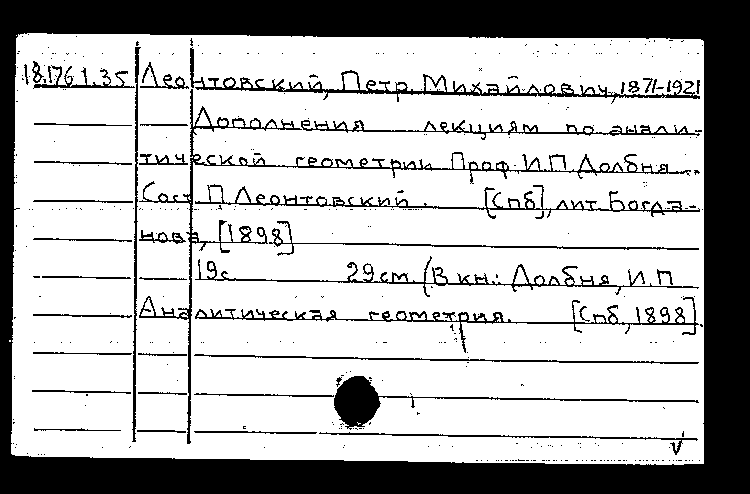 18.176 1.35 Леонтовский, Петр Михайлович, 1871-1921
Дополнения лекциям по анали-
тической геометрии Проф. И.П. Долбня...
Сост. П. Леонтовский. [Спб], лит. Богда-
нова, [1898]
19с 29см. (В кн.: Долбня, И.П
Аналитическая геометрия. [Спб., 1898].